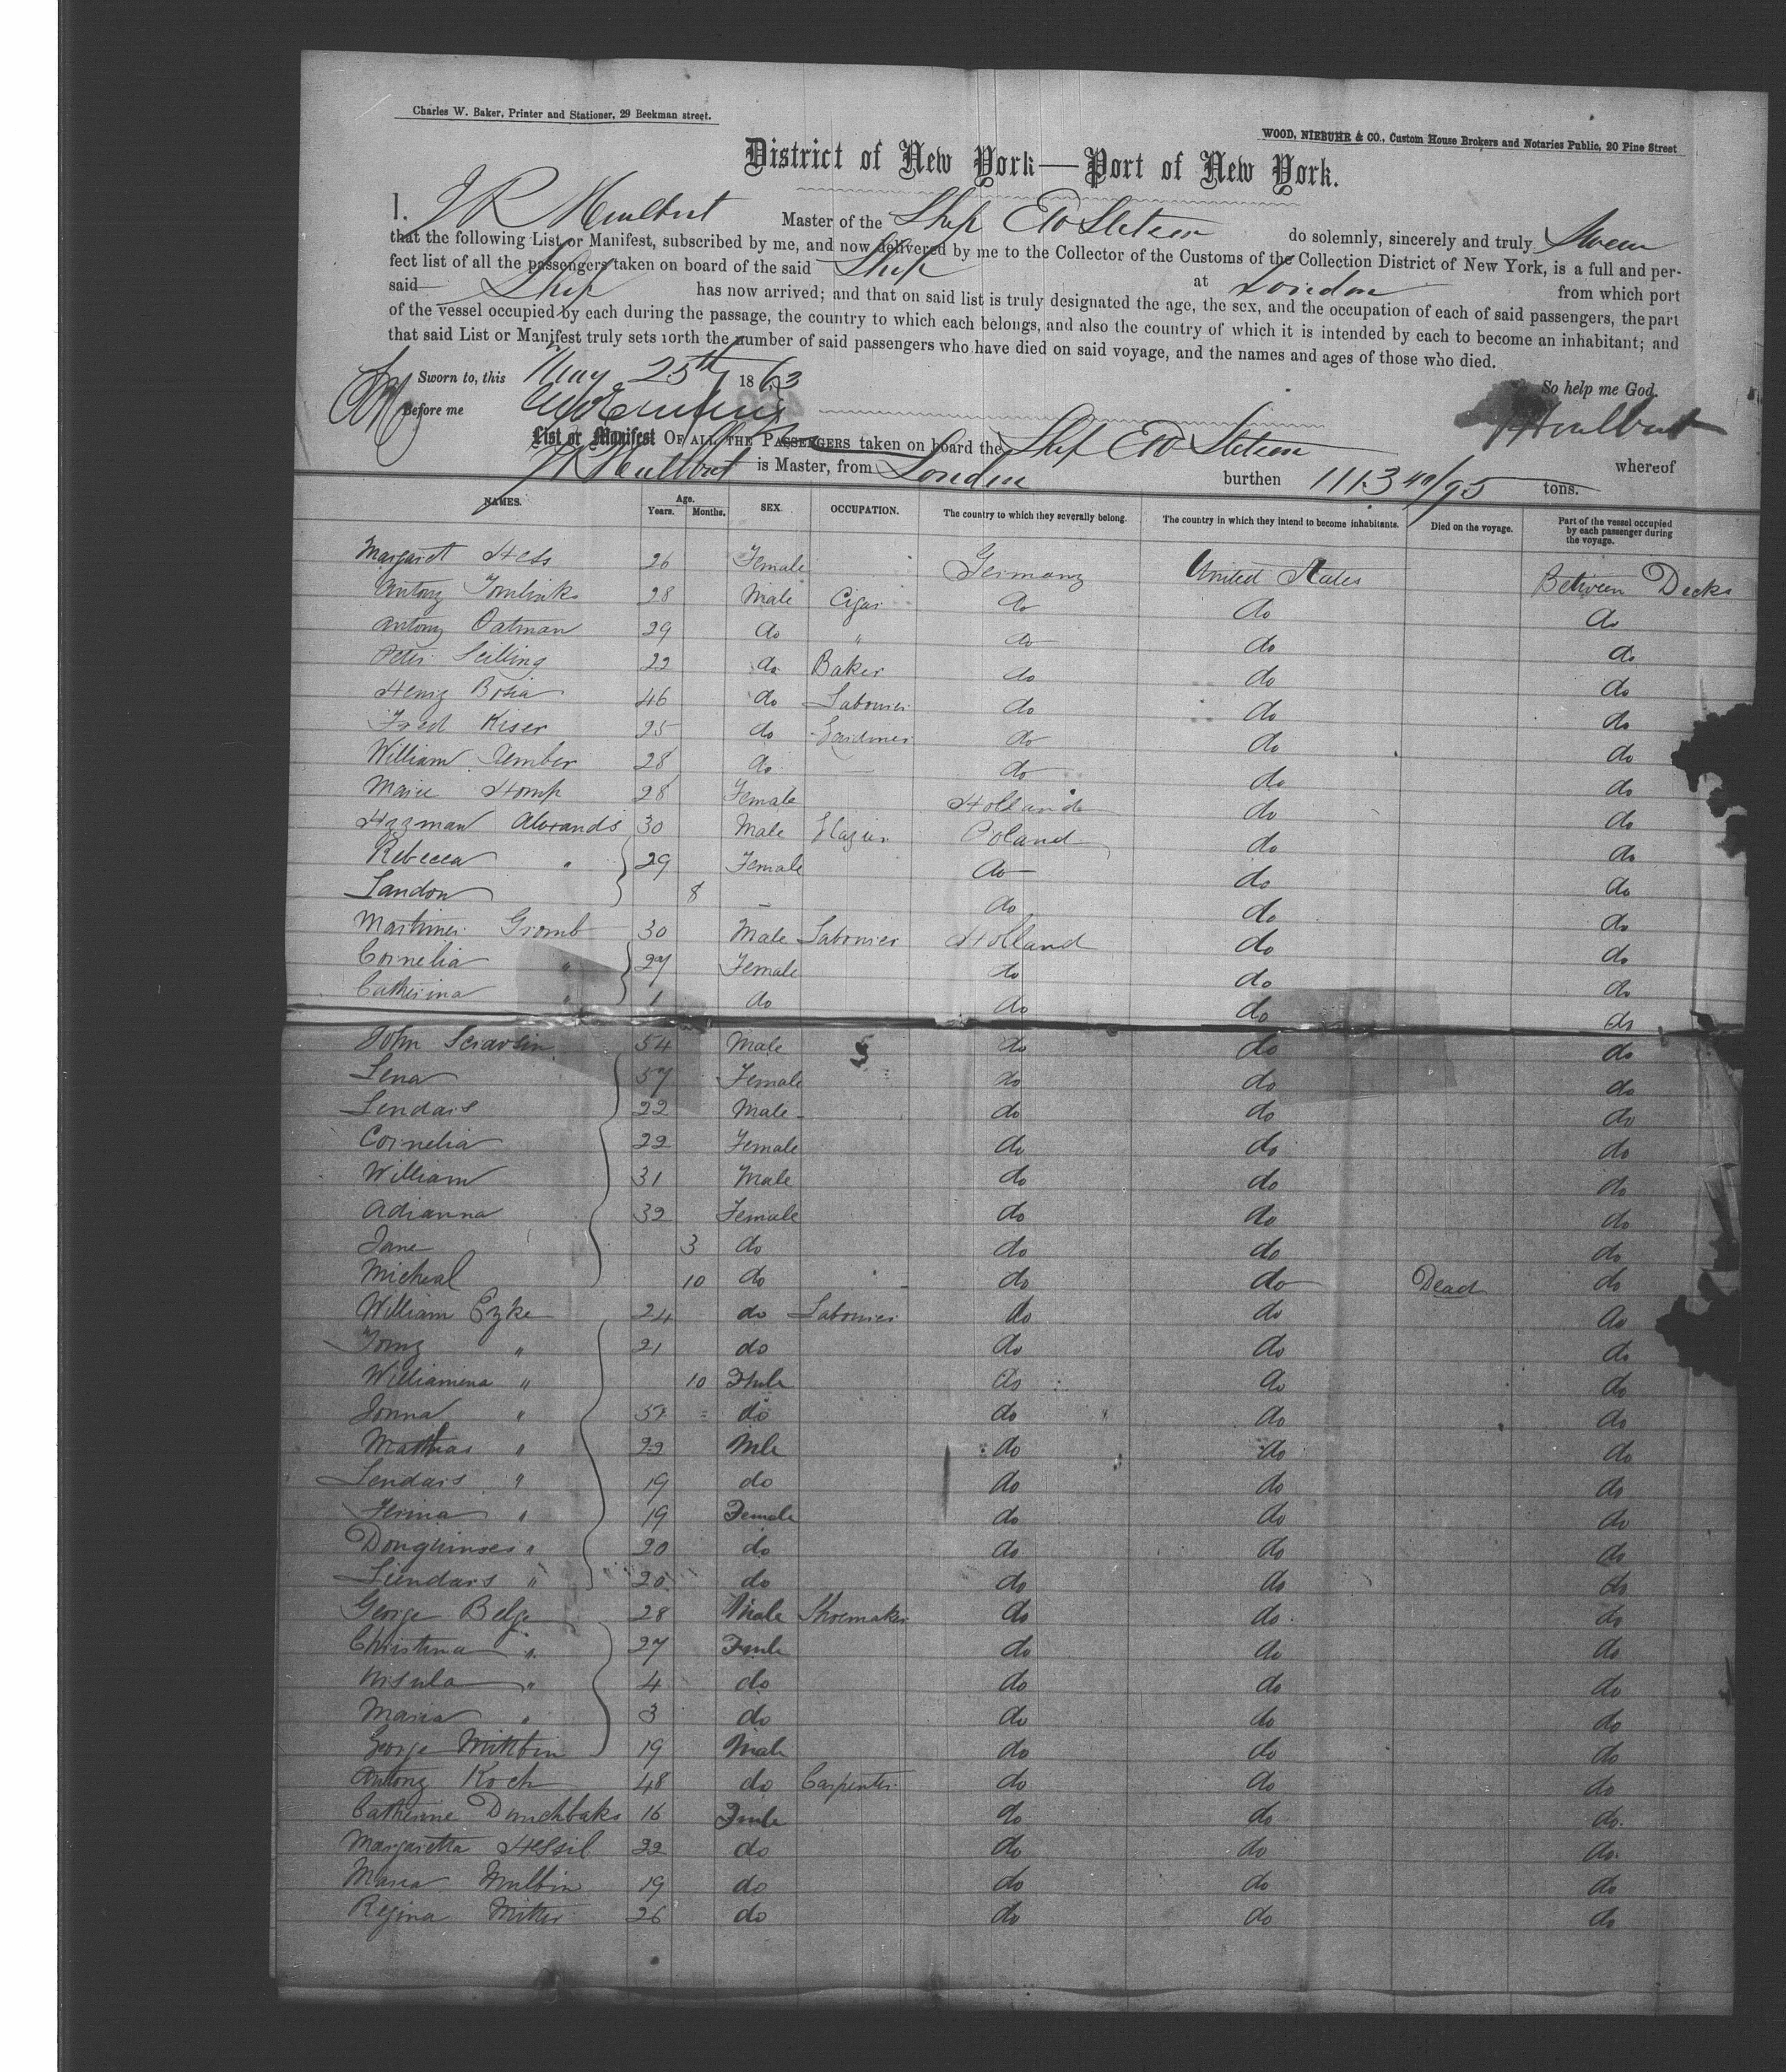 Charles W. Baker, Printer and Stationer, 29 Beekman street.
WOOD, NIEBUHR & CO., Custom House Brokers and Notaries Public, 20 Pine Street
District of New York—Port of New York.
I, J R Hurlbut Master of the Ship E W Stetson do solemnly, sincerely and truly Swear
that the following List or Manifest, subscribed by me, and now delivered by me to the Collector of the Customs of the Collection District of New York, is a full and per-
fect list of all the passengers taken on board of the said Ship at London from which port
said Ship has now arrived; and that on said list is truly designated the age, the sex, and the occupation of each of said passengers, the part
of the vessel occupied by each during the passage, the country to which each belongs, and also the country of which it is intended by each to become an inhabitant; and
that said List or Manifest truly sets forth the number of said passengers who have died on said voyage, and the names and ages of those who died.
Sworn to, this May 25th 1863 So help me God.
Before me Hurlbut
List or Manifest OF ALL THE PASSENGERS taken on board the Ship E W Stetson whereof
J R Hurlbut is Master, from London burthen 1113 40/95 tons.
NAMES. Age. Years. Months. SEX. OCCUPATION. The country to which they severally belong. The country in which they intend to become inhabitants. Died on the voyage. Part of the vessel occupied by each passenger during the voyage.
Margaret Hess 26 Female Germany United States Between Decks
Antony 28 Male Cigar do do do
Antony Oatman 29 do " do do do
Peter Seilling 22 do Baker do do do
Henry Bosia 46 do Labourer do do do
Fred Kiser 25 do Gardner do do do
William 28 do — do do do
Marie Homp 28 Female Holland do do
Hyman Abrands 30 Male Glazier Poland do do
Rebecca " 29 Female do do do
Landon 8 – do do do
Martiner Gromb 30 Male Labourer Holland do do
Cornelia " 27 Female do do do
Catherina " 1 do do do do
John 54 Male do do do
Lena 57 Female do do do
Lendars 22 Male do do do
Cornelia 22 Female do do do
William 31 Male do do do
Adrianna 32 Female do do do
Jane 3 do do do do
Micheal 10 do do do Dead do
William Eyke 24 do Labourer do do do
" 21 do do do do
Williamina " 10 Fmle do do do
Jonna " 57 do do do do
Mathias " 22 Mle do do do
Lendars " 19 do do do do
" 19 Female do do do
" 20 do do do do
Liendars " 20 do do do do
George Belge 28 Male Shoemaker do do do
Christina " 27 Fmle do do do
" 4 do do do do
Maria " 3 do do do do
George 19 Male do do do
Antony Koch 48 do Carpenter do do do
Catherine 16 Fmle do do do
Margaretta Hessil 22 do do do do
Maria 19 do do do do
Regina 26 do do do do